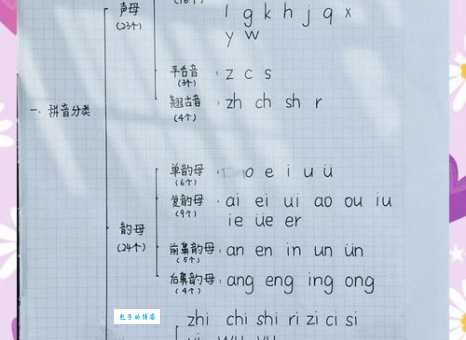 声母
(23个)
l g k h j q x
y w
平舌音 z c s
(3个)
翘舌音 zh ch sh r
(4个)
一. 拼音分类
单韵母 o e i u ü
(6个)
复韵母 ai ei ui ao ou iu
(9个) ie üe er
韵母
(24个)
前鼻韵母 an en in un ün
(5个)
后鼻韵母 ang eng ing ong
(4个)
zhi chi shi ri zi ci si